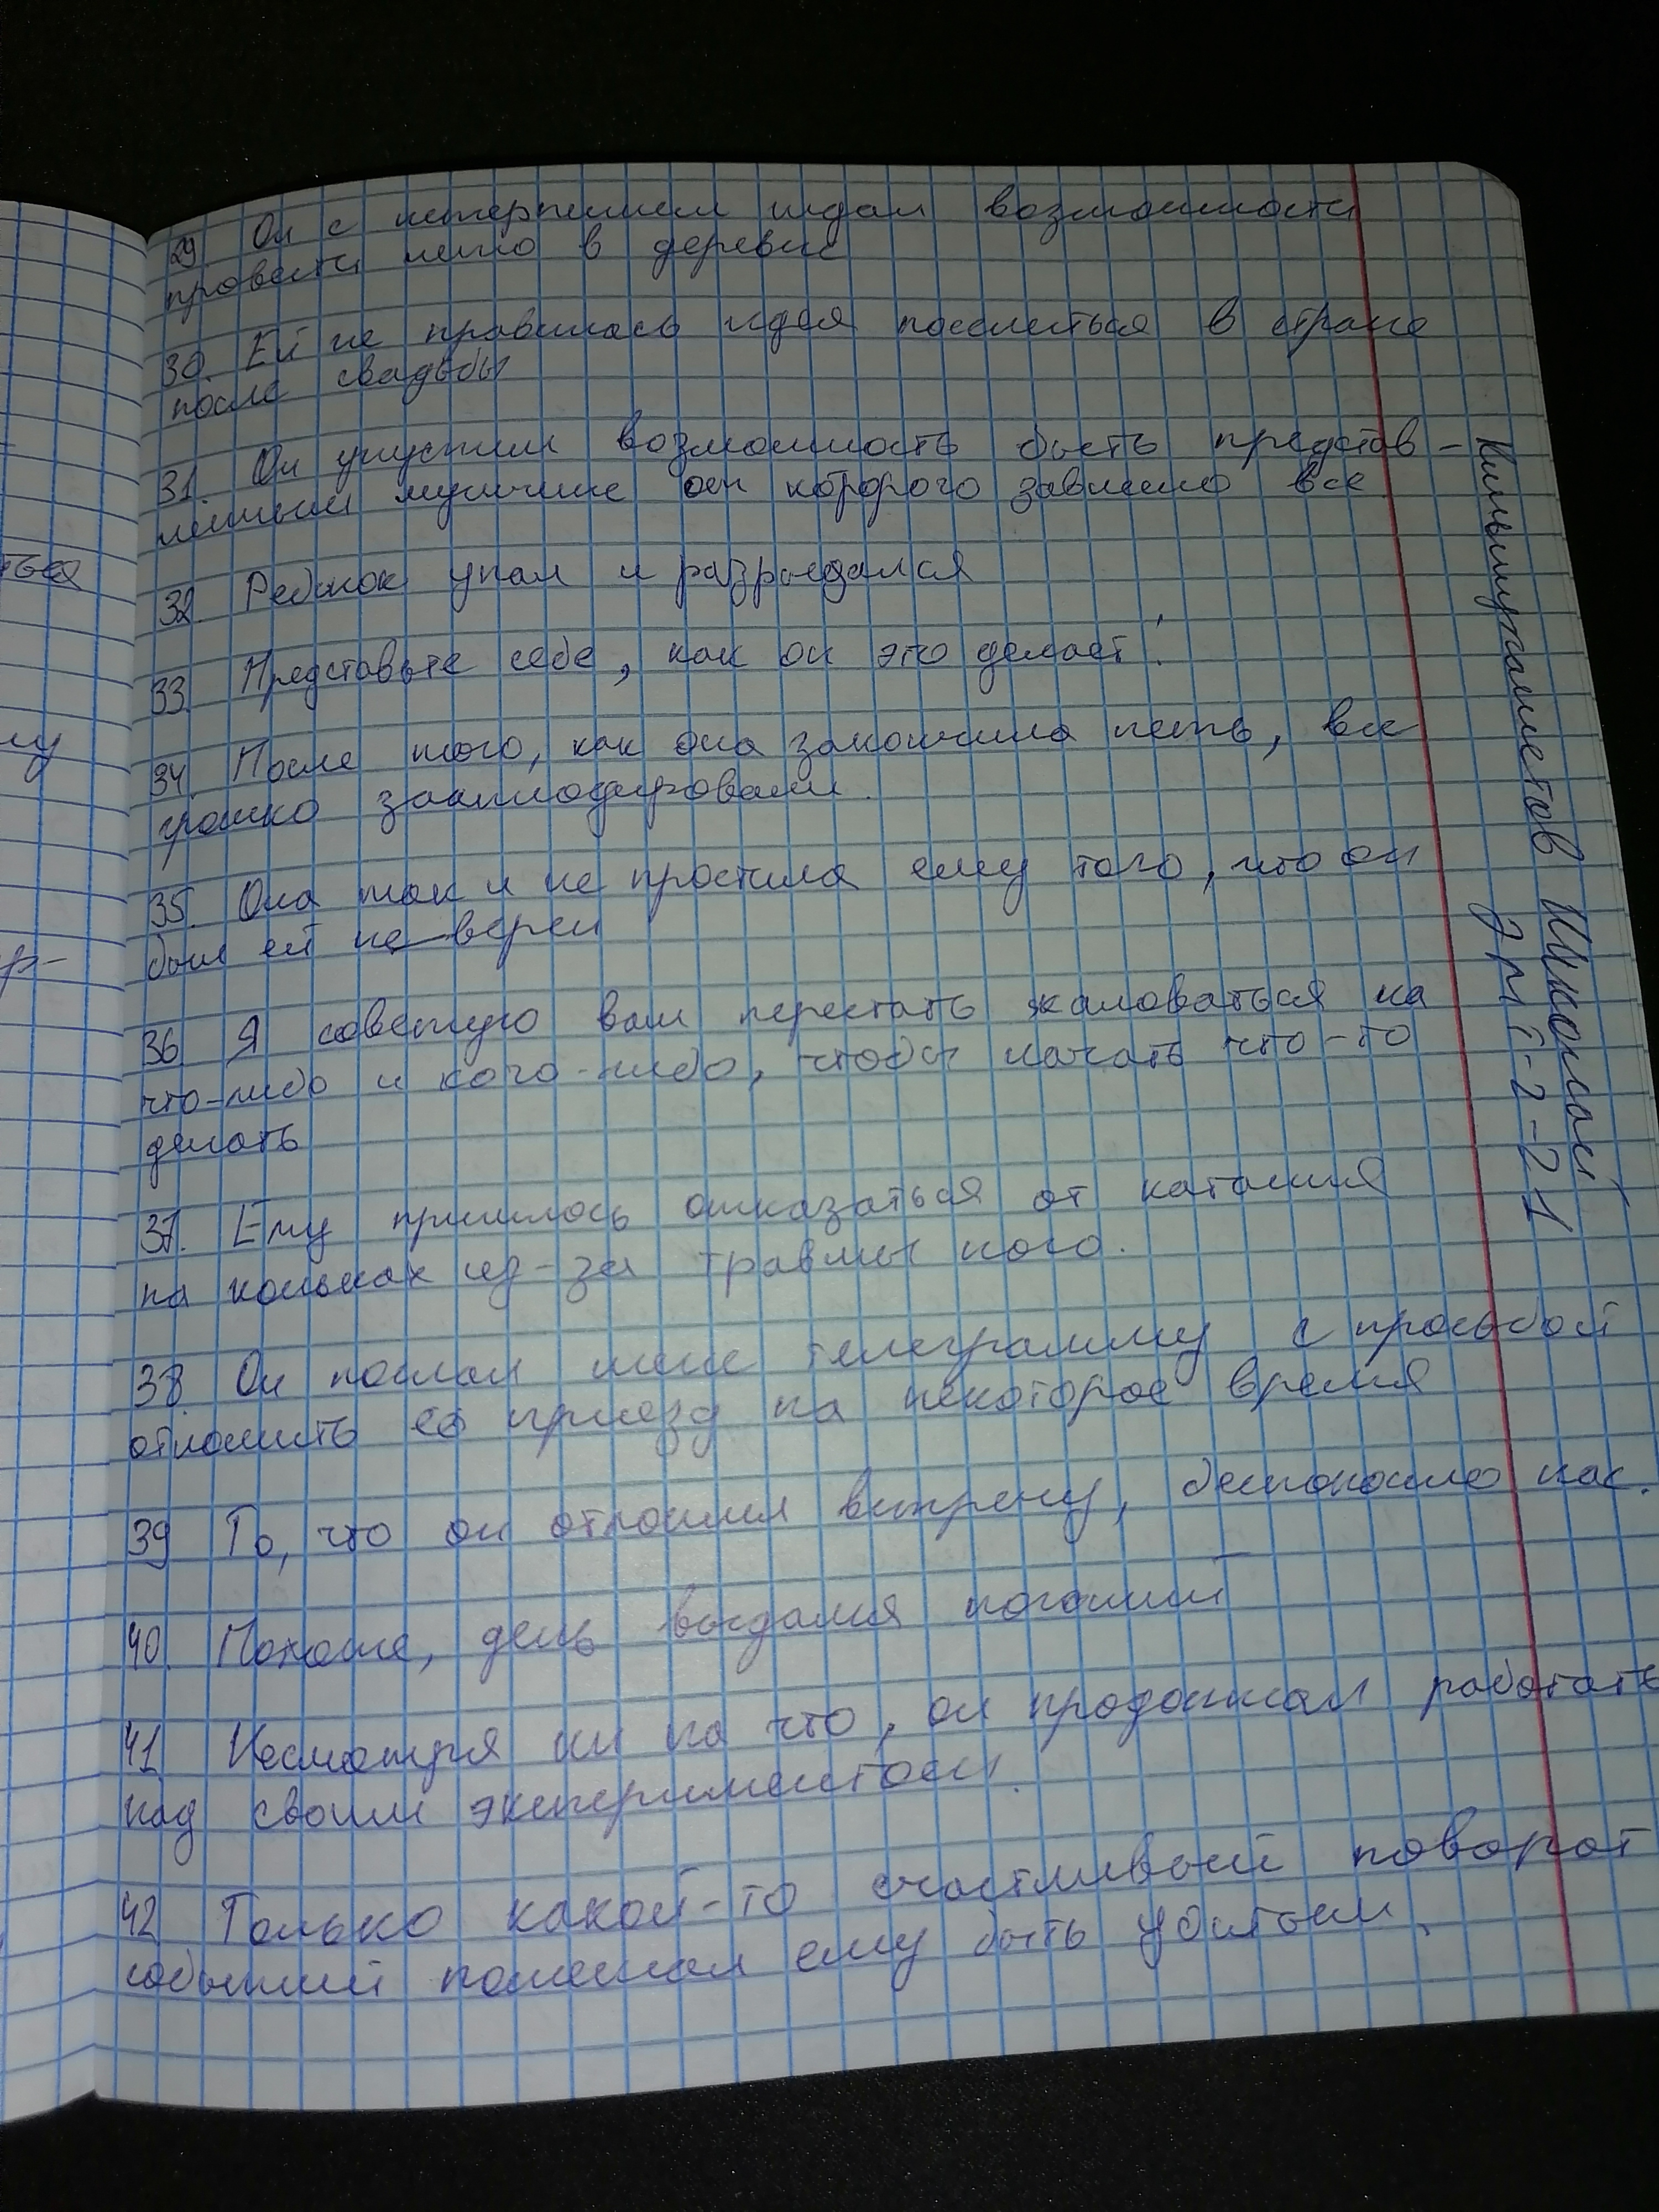 29 Он с нетерпением ждал возможности
провести лето в деревне
30. Ей не нравилась идея поселиться в стране
после свадьбы
31. Он упустил возможность быть представ-
ленным мужчине от которого зависело все
32. Ребенок упал и разрыдался
33. Представьте себе, как он это делает!
34. После того, как она закончила петь, все
громко зааплодировали.
35. Она так и не простила ему того, что он
был ей не верен
36 Я советую вам перестать жаловаться на
что-либо и кого-либо, чтобы начать что-то
делать
37. Ему пришлось отказаться от катания
на коньках из-за травмы
38. Он послал мне телеграмму с просьбой
отложить её приезд на некоторое время
39 То, что он отложил встречу, беспокоило нас.
40. Похоже, день выдался погожий
41 Несмотря ни на что, он продолжал работать
над своим экспериментом.
42 Только какой-то счастливый поворот
событий помешал ему быть убитым.
Николай
ться
му
р-